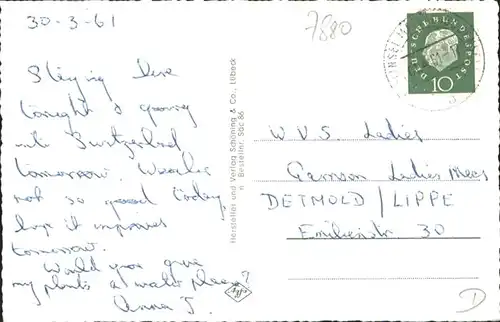 30-3-61
7880
Staying here
tonight & going
into Switzerland
tomorrow. Weather
not so good today
hope it improves
tomorrow.
Would you give
my plants a water please?
Anna J.
Hersteller und Verlag Schöning & Co., Lübeck
Bestellnr. Säc 86
DEUTSCHE BUNDESPOST
10
W.V.S. Ladies
Garrison Ladies Mess
DETMOLD / LIPPE
Emilienstr 30
D